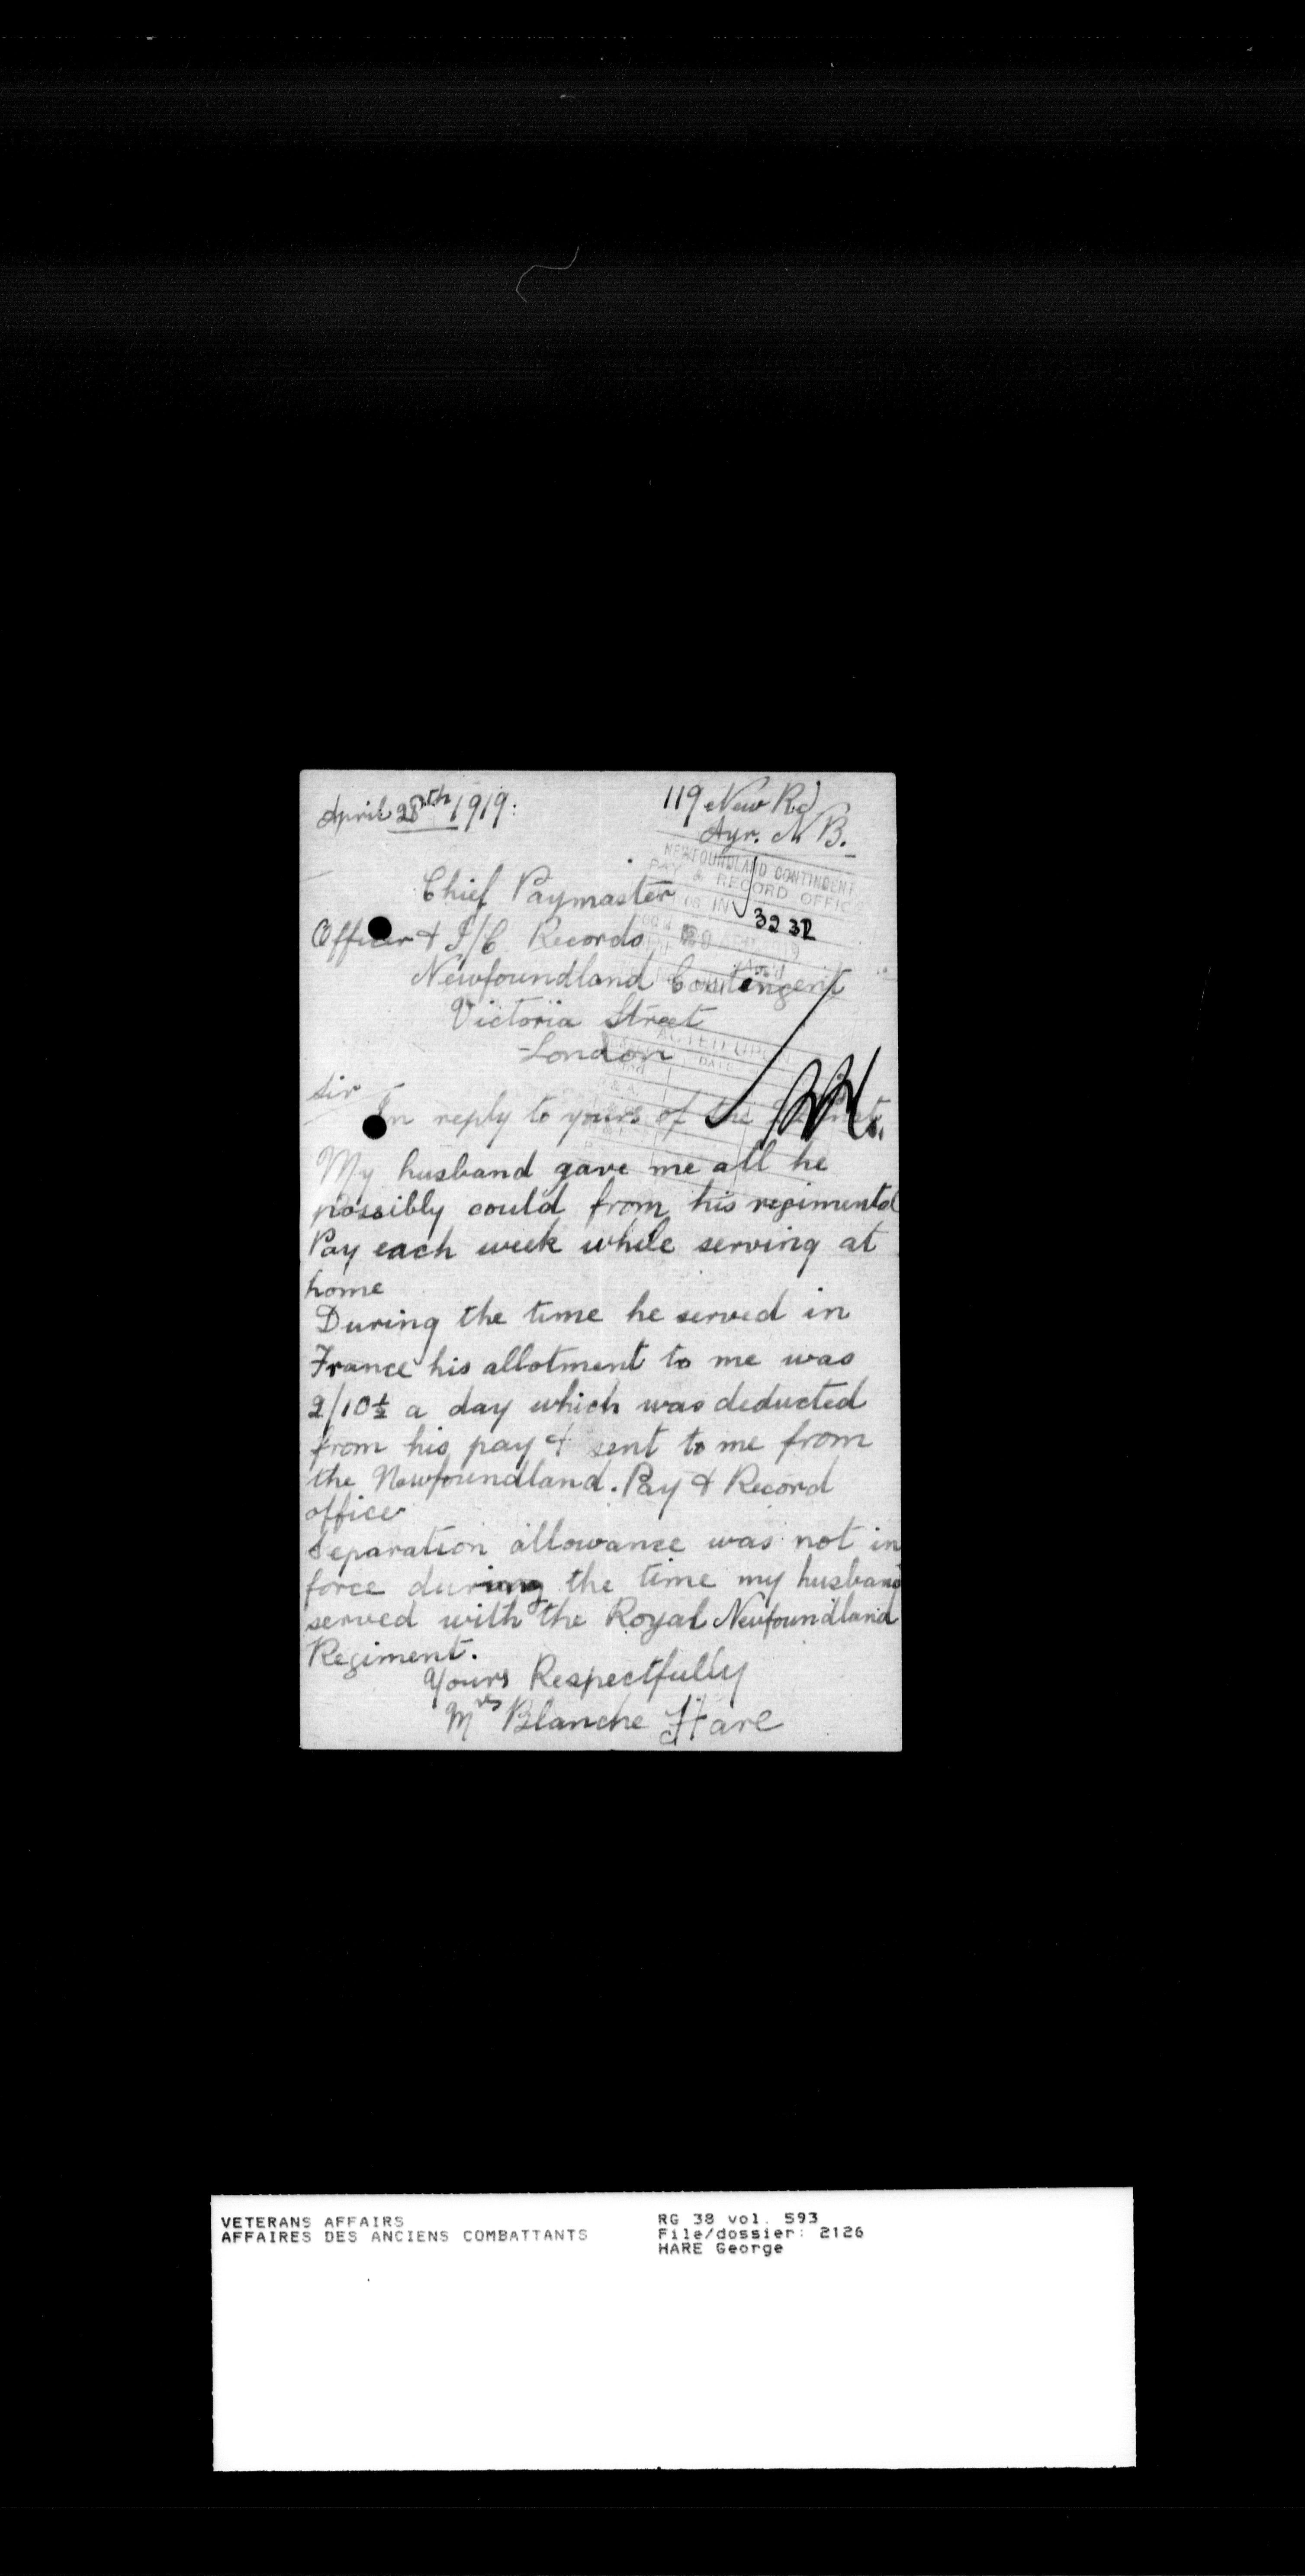 April 28th 1919.
119 New Rd
Ayr. N B.
NEWFOUNDLAND CONTINGENT
PAY & RECORD OFFICE
IN 3232
Chief Paymaster
Officer & I/C Records
Newfoundland Contingent
Victoria Street
London
ACTED UPON
DATE
Sir
In reply to yours of the
My husband gave me all he
possibly could from his regimental
Pay each week while serving at
home
During the time he served in
France his allotment to me was
2/10½ a day which was deducted
from his pay & sent to me from
the Newfoundland. Pay & Record
office
Separation allowance was not in
force during the time my husband
served with the Royal Newfoundland
Regiment.
Yours Respectfully
Mrs Blanche Hare
VETERANS AFFAIRS
AFFAIRES DES ANCIENS COMBATTANTS
RG 38 vol. 593
File/dossier: 2126
HARE George